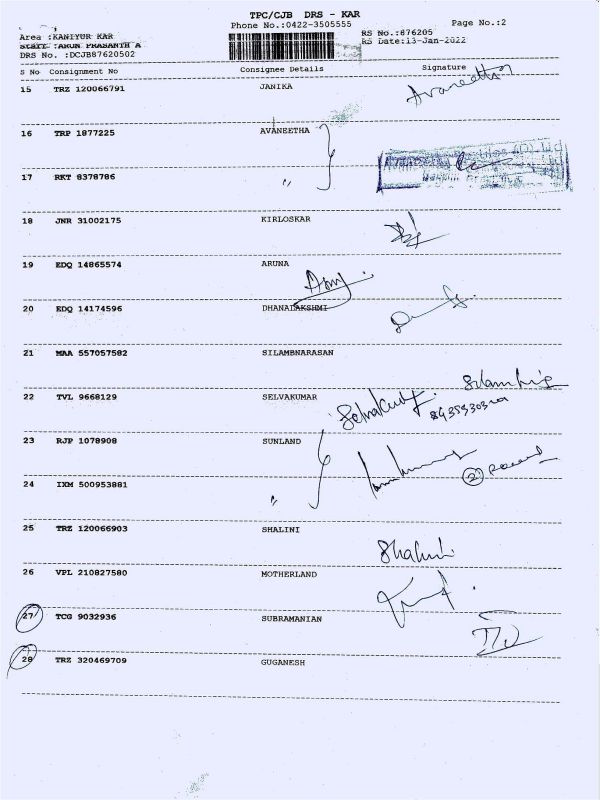 TPC/CJB DRS - KAR
Phone No.:0422-3505555 Page No.:2
Area :KANIYUR KAR RS No.:876205
Staff :ARUN PRASANTH A RS Date:13-Jan-2022
DRS No. :DCJB87620502
S No Consignment No Consignee Details Signature
15 TRZ 120066791 JANIKA Avaneetha
16 TRP 1877225 AVANEETHA
17 RKT 8378786 "
18 JNR 31002175 KIRLOSKAR
19 EDQ 14865574 ARUNA
20 EDQ 14174596 DHANALAKSHMI
21 MAA 557057582 SILAMBNARASAN
22 TVL 9668129 SELVAKUMAR Selvakumar
23 RJP 1078908 SUNLAND
24 IXM 500953881 " 2
25 TRZ 120066903 SHALINI Shalini
26 VPL 210827580 MOTHERLAND
27 TCG 9032936 SUBRAMANIAN
28 TRZ 320469709 GUGANESH